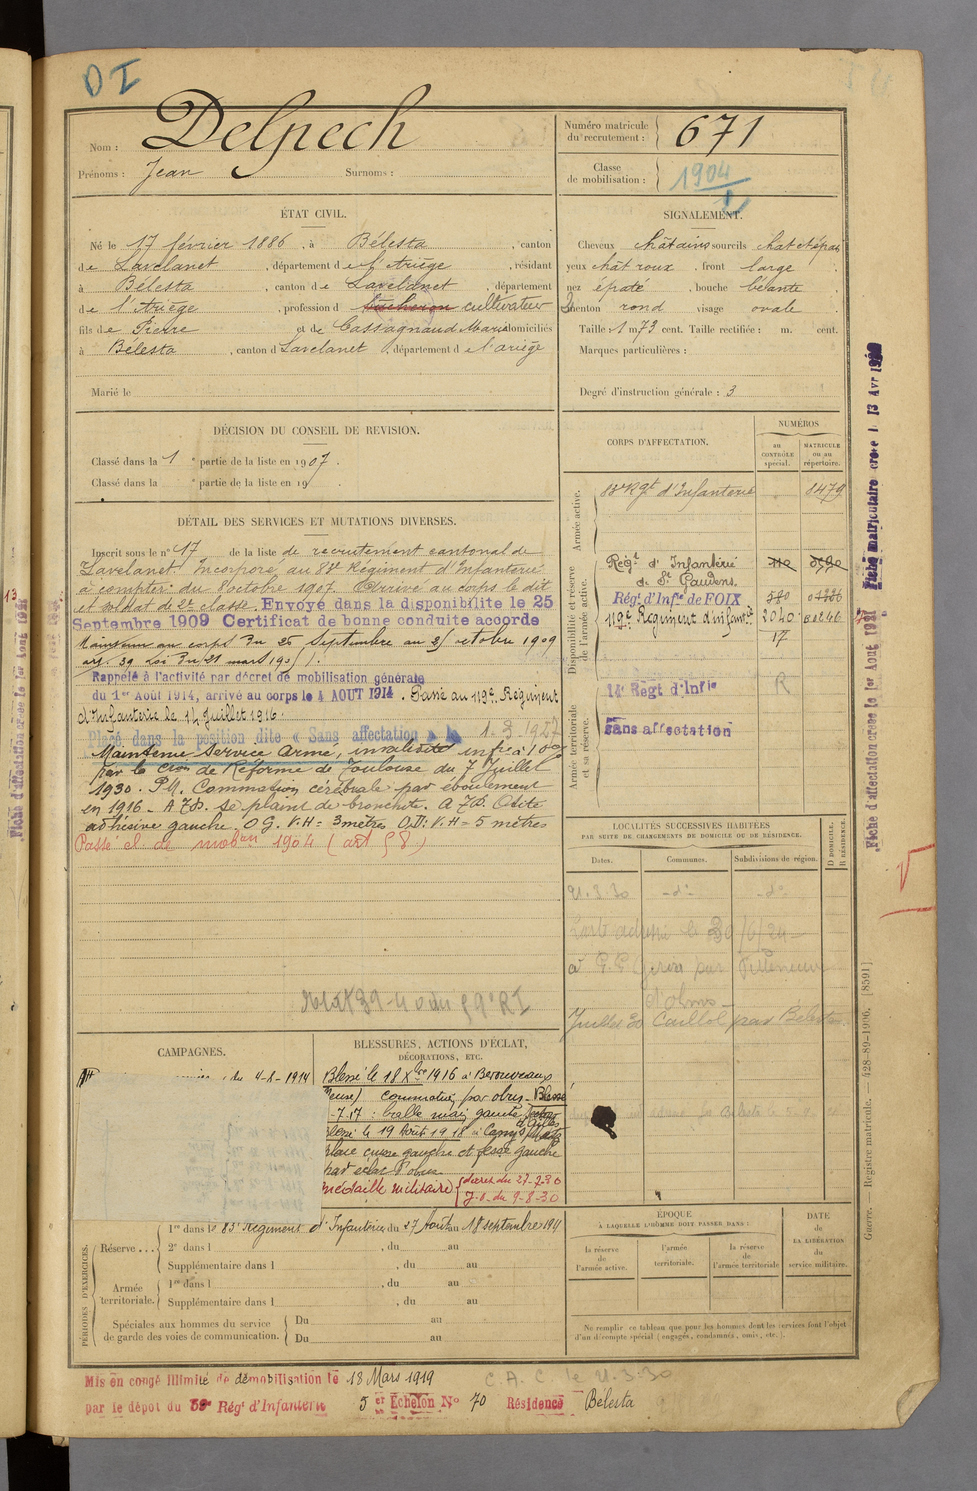 D I
Nom : Delpech
Prénoms : Jean Surnoms :
Numéro matricule du recrutement : 671
Classe de mobilisation : 1904
ÉTAT CIVIL.
Né le 17 février 1886, à Bélesta, canton
de Lavelanet, département de l'Ariège, résidant
à Bélesta, canton de Lavelanet, département
de l'Ariège, profession de bucheron cultivateur
fils de Pierre et de Cassagnaud Marie domiciliés
à Bélesta, canton d Lavelanet, département d e l'ariège
Marié le
SIGNALEMENT.
Cheveux châtains sourcils chat et épais
yeux chât roux, front large
nez épaté, bouche béante
menton rond visage ovale
Taille : 1 m 73 cent. Taille rectifiée : m. cent.
Marques particulières :
Degré d'instruction générale : 3
DÉCISION DU CONSEIL DE REVISION.
Classé dans la 1 e partie de la liste en 1907.
Classé dans la e partie de la liste en 19
CORPS D'AFFECTATION.
NUMÉROS
au CONTRÔLE spécial.
MATRICULE ou au répertoire.
Armée active.
83e Rgt d'Infanterie 8479
Disponibilité et réserve de l'armée active.
Régt d'Infanterie
de St Gaudens.
Régt d'Infie de FOIX 580
119e Régiment d'infantie 2040
17
Armée territoriale et sa réserve.
14e Regt d'Infie R
sans affectation
DÉTAIL DES SERVICES ET MUTATIONS DIVERSES.
Inscrit sous le n° 17 de la liste de recrutement cantonal de
Lavelanet. Incorporé au 83e Régiment d'Infanterie
à compter du 8 octobre 1907. Arrivé au corps le dit
et soldat de 2e classe. Envoyé dans la disponibilité le 25
Septembre 1909 Certificat de bonne conduite accordé
Maintenu au corps du 25 Septembre au octobre 1909
art. 39 Loi du 21 mars 1905.
Rappelé à l'activité par décret de mobilisation générale
du 1er Août 1914, arrivé au corps le 4 AOUT 1914. Passé au 119e Régiment
d'Infanterie le 14 Juillet 1916.
Placé dans la position dite « Sans affectation » le 1-3 1927
Maintenu Service Armé, invalidité infre à 10 %
par la Cion de Réforme de Toulouse du 7 Juillet
1930. P.M. Commotion cérébrale par éboulement
en 1916 - A 7D. Se plaint de bronchite. A 7D. Otite
adhésive gauche. O G. V.H = 3 mètres O.D: V.H = 5 mètres
Passe cl. de mobon 1904 (art 58)
LOCALITÉS SUCCESSIVES HABITÉES
PAR SUITE DE CHANGEMENTS DE DOMICILE OU DE RÉSIDENCE.
Dates. Communes. Subdivisions de région. D DOMICILE. R RÉSIDENCE.
21.3.30 -do- -do-
à
d'olmes
Juillet 30 Caillol par Bélesta
CAMPAGNES.
du 4-8-1914
BLESSURES, ACTIONS D'ÉCLAT,
DÉCORATIONS, ETC.
Blessé le 18 Xbre 1916 à Bezonvaux
(Meuse) commotion par obus - Blessé
-7.17 : balle main gauche
Blessé le 19 Août 1918 à Canny s/ Matz
plaie cuisse gauche et fesse gauche
par éclat d'obus
médaille militaire (décret du 27-7-30
J.O. du 9-8-30
PÉRIODES D'EXERCICES.
Réserve ...
1re dans le 83e Régiment d'Infanterie, du 27 Août au 18 septembre 1911
2e dans l , du au
Supplémentaire dans l , du au
Armée territoriale.
1re dans l , du au
Supplémentaire dans l , du au
Spéciales aux hommes du service
de garde des voies de communication.
Du au
Du au
ÉPOQUE
À LAQUELLE L'HOMME DOIT PASSER DANS :
la réserve de l'armée active.
l'armée territoriale.
la réserve de l'armée territoriale
DATE de LA LIBÉRATION du service militaire.
Ne remplir ce tableau que pour les hommes dont les services font l'objet
d'un décompte spécial (engagés, condamnés, omis, etc.).
Mis en congé illimité de démobilisation le 18 Mars 1919 C.A.C le 21.3.30
par le dépot du 59e Régt d'Infanterie 5 er Echelon No 70 Résidence Bélesta
Fiche matriculaire créée le 13 Avr
Fiche d'affectation créée le 1er Aout 1921
Guerre. — Registre matricule. — 428-89-1906. [8591]